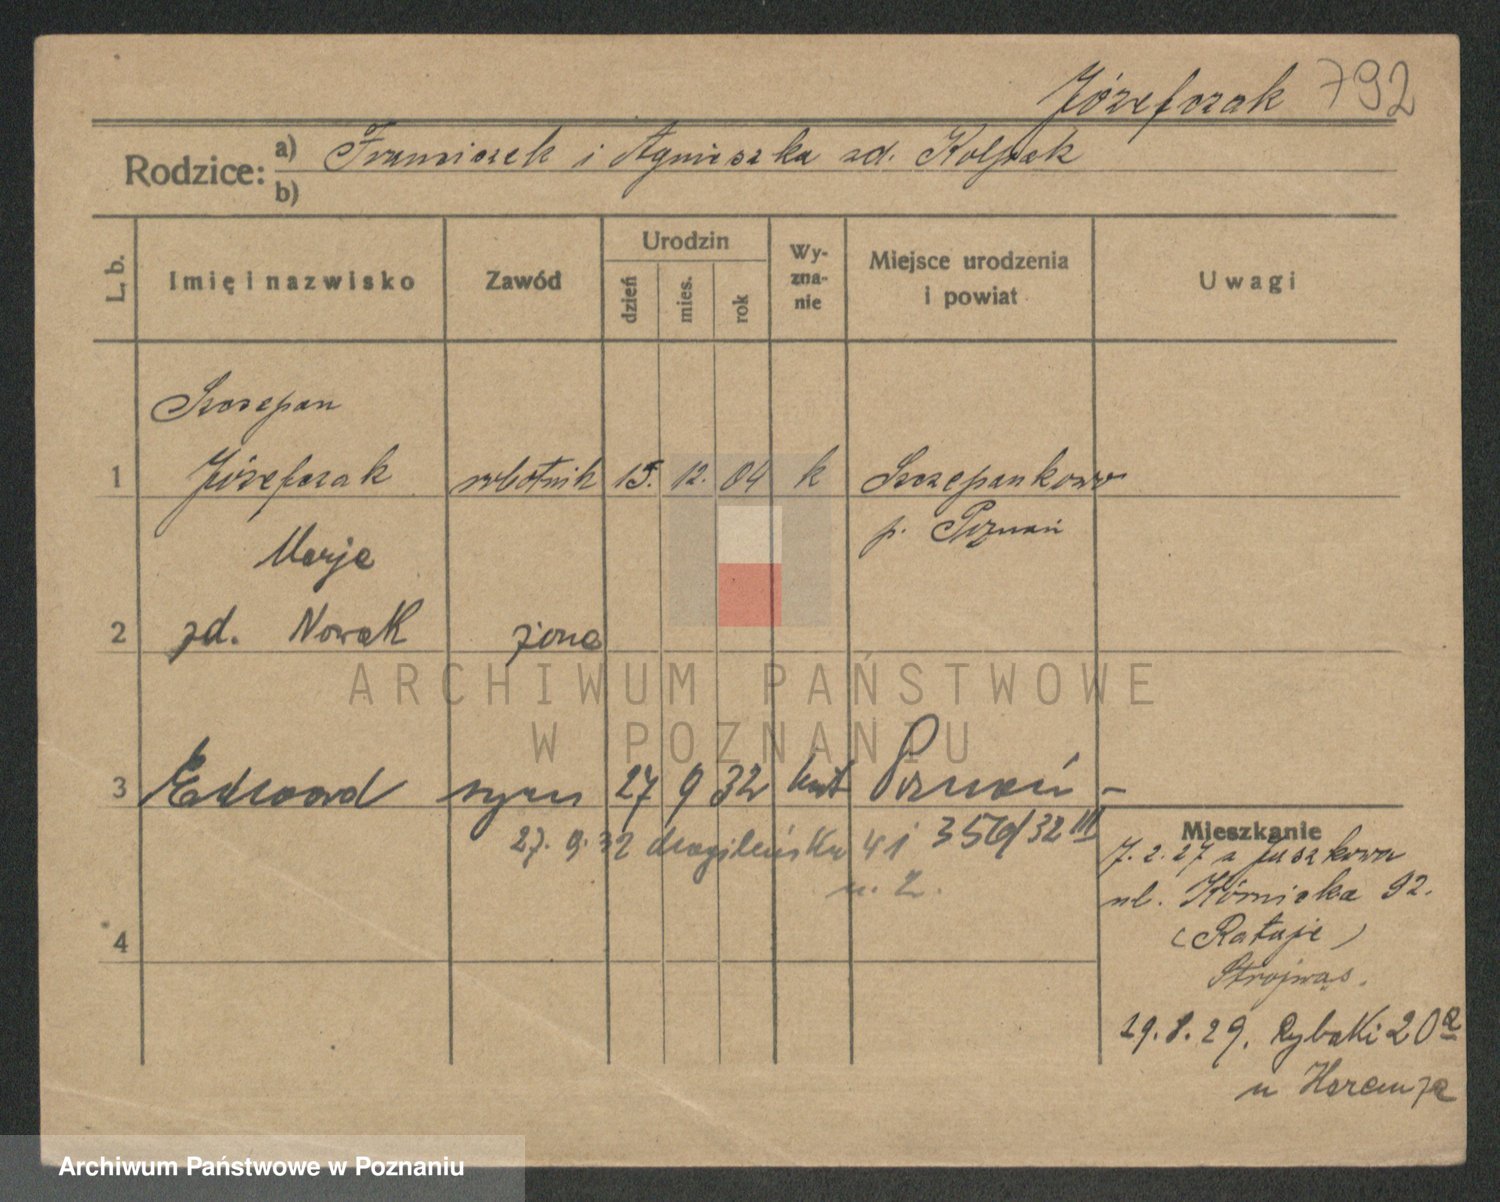 Józefczak 792
Rodzice: a) Franciszek i Agnieszka zd. Kolpak
b)
L. b. Imię i nazwisko Zawód Urodzin dzień mies. rok Wy-zna-nie Miejsce urodzenia i powiat Uwagi
Szczepan
1 Józefczak robotnik 15. 12. 04 k Szczepankowo
p. Poznań
Marja
2 zd. Nowak żona
ARCHIWUM PAŃSTWOWE
W POZNANIU
3 Edward syn 27 9 32 kat Poznań -
27. 9. 32 41 356/32 III
m. 2.
Mieszkanie
7. 2. 27 z Juszkowa
ul. Kórnicka 92.
4 (Rataje)
Strojwąs.
29. 8. 29. Rybaki 20a
u
Archiwum Państwowe w Poznaniu